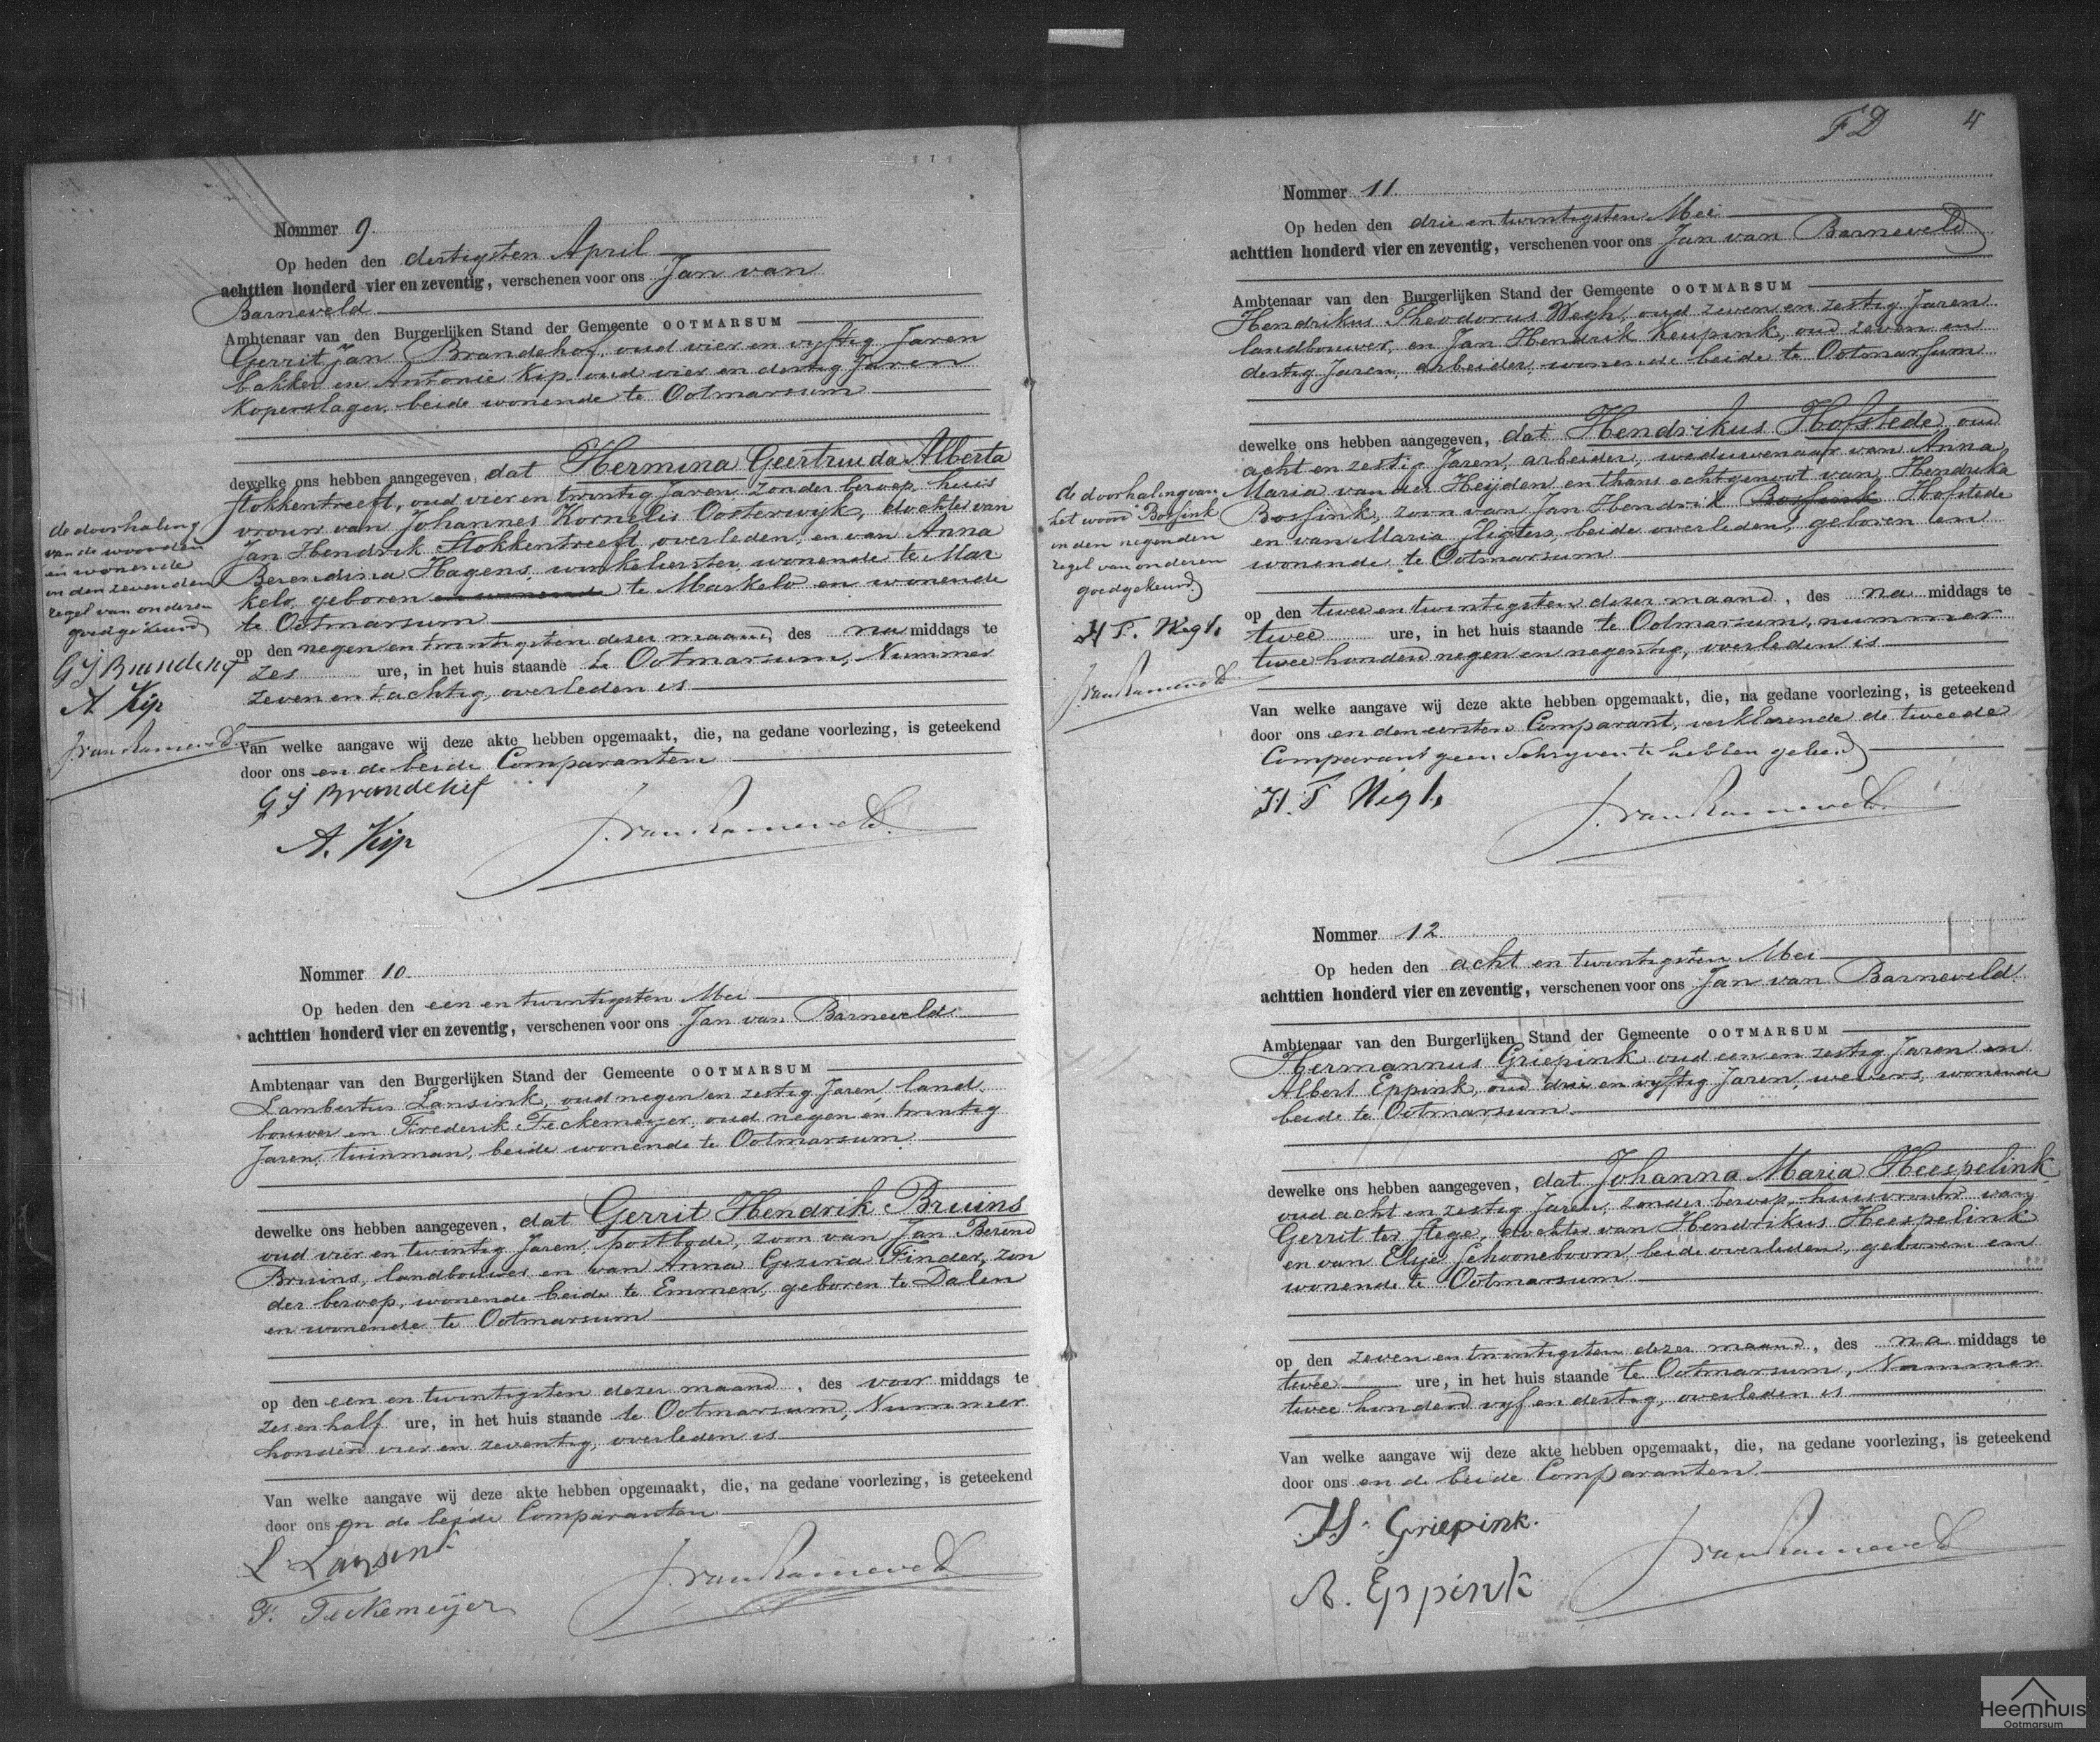 Nommer 9
Op heden den dertigsten April
achttien honderd vier en zeventig, verschenen voor ons Jan van
Barneveld
Ambtenaar van den Burgerlijken Stand der Gemeente OOTMARSUM
Gerrit Jan Brandehof, oud vier en vyftig Jaren
bakker en Antonie Kip, oud vier en dertig Jaren
Koperslager, beide wonende te Ootmarsum
dewelke ons hebben aangegeven, dat Hermina Geertruida Alberta
Stokkentreeft, oud vier en twintig Jaren zonder beroep, huis
vrouw van Johannes Kornelis Oosterwyk, dochter van
Jan Hendrik Stokkentreeft, overleden, en van Anna
Berendina Hagens, winkelierster, wonende te Mar
kelo, geboren en wonende te Markelo en wonende
te Ootmarsum
op den negen en twintigsten dezer maand, des na middags te
zes ure, in het huis staande te Ootmarsum, Nummer
zeven en tachtig, overleden is
Van welke aangave wij deze akte hebben opgemaakt, die, na gedane voorlezing, is geteekend
door ons en de beide Comparanten
G J Brandehof
A. Kip
J. van Barneveld.
de doorhaling
van de woorden
en wonende
in den zevenden
regel van onderen
goedgekeurd
G J Brandehof
A Kip
J. van Barneveld.
Nommer 10
Op heden den een en twintigsten Mei
achttien honderd vier en zeventig, verschenen voor ons Jan van Barneveld
Ambtenaar van den Burgerlijken Stand der Gemeente OOTMARSUM
Lambertus Lansink, oud negen en zestig Jaren land
bouwer en Frederik Feckemeyer, oud negen en twintig
Jaren, tuinman, beide wonende te Ootmarsum
dewelke ons hebben aangegeven, dat Gerrit Hendrik Bruins
oud vier en twintig Jaren, postbode, zoon van Jan Berend
Bruins, landbouwer en van Anna Gezina Finder, zon
der beroep, wonende beide te Emmen, geboren te Dalen
en wonende te Ootmarsum
op den een en twintigsten dezer maand, des voor middags te
zes en half ure, in het huis staande te Ootmarsum, Nummer
honderd vier en zeventig, overleden is
Van welke aangave wij deze akte hebben opgemaakt, die, na gedane voorlezing, is geteekend
door ons en de beide Comparanten
L Lansink
F. Feckemeijer
J. van Barneveld
FD 4
Nommer 11
Op heden den drie en twintigsten Mei
achttien honderd vier en zeventig, verschenen voor ons Jan van Barneveld
Ambtenaar van den Burgerlijken Stand der Gemeente OOTMARSUM
Hendrikus Theodorus Wegh, oud zeven en zestig Jaren
landbouwer, en Jan Hendrik Keupink, oud zeven en
dertig Jaren, arbeider, wonende beide te Ootmarsum
dewelke ons hebben aangegeven, dat Hendrikus Hofstede oud
acht en zestig Jaren, arbeider, weduwenaar van Anna
Maria van der Heijden en thans echtgenoot van Hendrika
Bossink, zoon van Jan Hendrik Bossink Hofstede
en van Maria beide overleden, geboren en
wonende te Ootmarsum
op den twee en twintigsten dezer maand, des na middags te
twee ure, in het huis staande te Ootmarsum, nummer
twee honderd negen en negentig, overleden is
Van welke aangave wij deze akte hebben opgemaakt, die, na gedane voorlezing, is geteekend
door ons en den eersten Comparant, verklarende de tweede
Comparant geen Schryven te hebben geleerd
H. T Wegh
J. van Barneveld.
de doorhaling van
het woord Bossink
in den negenden
regel van onderen
goedgekeurd
H T. Wegh
J. van Barneveld.
Nommer 12
Op heden den acht en twintigsten Mei
achttien honderd vier en zeventig, verschenen voor ons Jan van Barneveld
Ambtenaar van den Burgerlijken Stand der Gemeente OOTMARSUM
Hermannus Griepink oud een en zestig Jaren en
Albert Eppink, oud drie en vyftig Jaren, wevers, wonende
beide te Ootmarsum
dewelke ons hebben aangegeven, dat Johanna Maria Heespelink
oud acht en zestig Jaren, zonder beroep, huisvrouw van
Gerrit ter Stege, dochter van Hendrikus Heespelink
en van Elsje Schooneboom, beide overleden, geboren en
wonende te Ootmarsum
op den zeven en twintigsten dezer maand, des na middags te
twee ure, in het huis staande te Ootmarsum, Nummer
twee honderd vyf en dertig, overleden is
Van welke aangave wij deze akte hebben opgemaakt, die, na gedane voorlezing, is geteekend
door ons en de beide Comparanten
H. Griepink.
A. Eppink
J. van Barneveld
Heemhuis
Ootmarsum